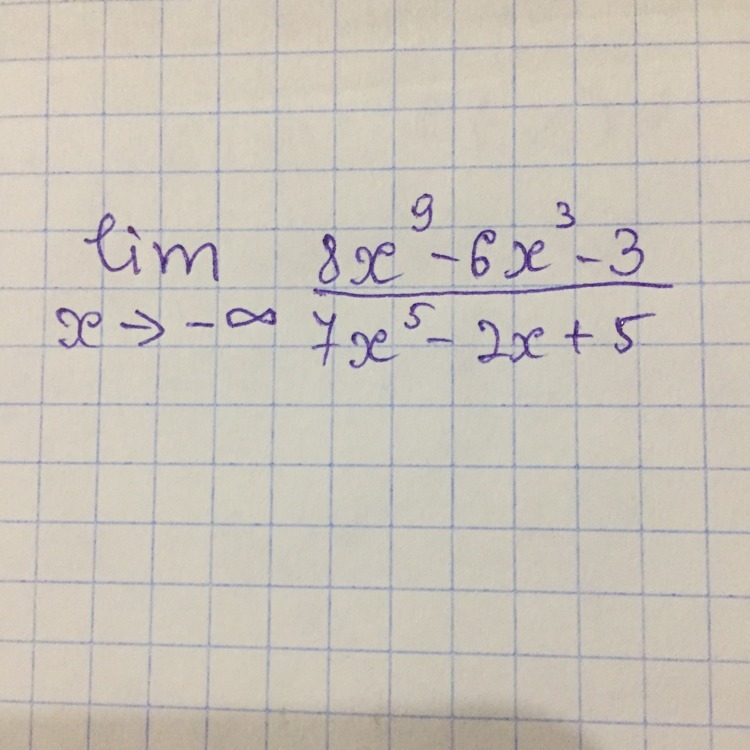 lim 8x⁹ - 6x³ - 3
x → -∞ 7x⁵ - 2x + 5